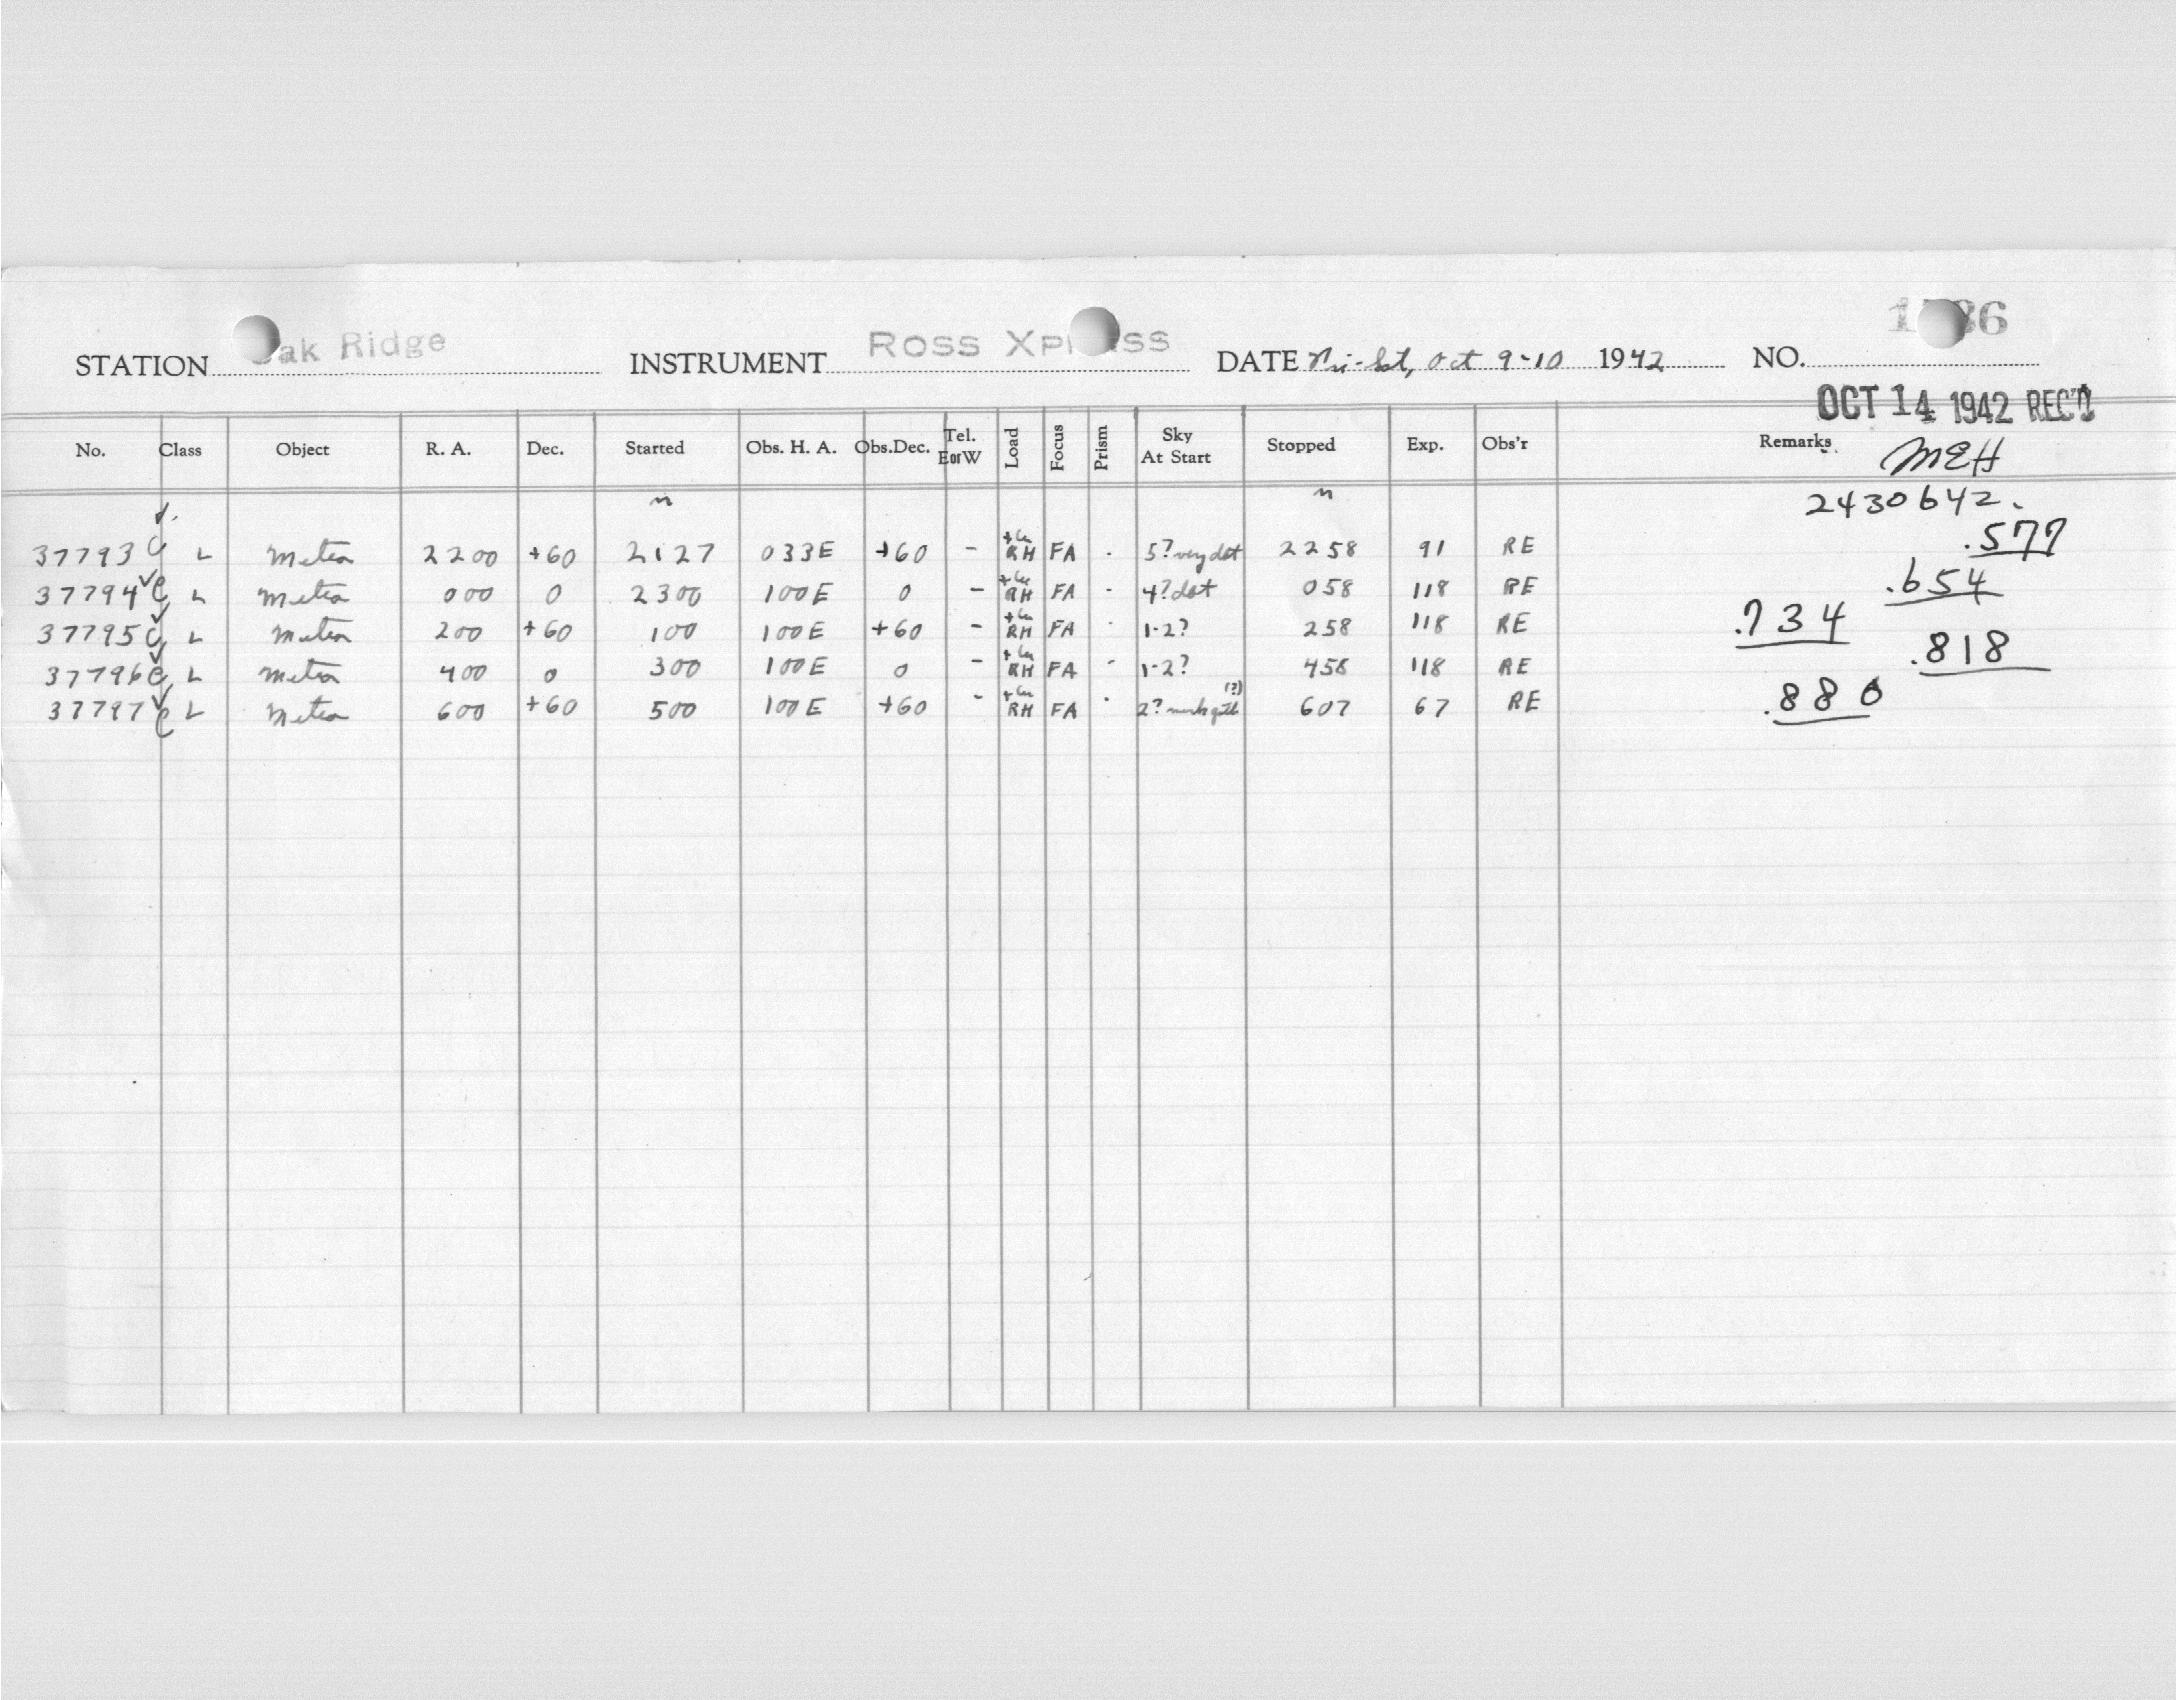 STATION Oak Ridge INSTRUMENT Ross Xpress DATE Fri-Sat, Oct 9-10 1942 NO.
OCT 14 1942 REC'D
No. Class Object R. A. Dec. Started Obs. H. A. Obs.Dec. Tel. EorW Load Focus Prism Sky At Start Stopped Exp. Obs'r Remarks
MEH
n n 2430642.
37793 C L Meteor 2200 +60 2127 033E +60 - RH FA - 5? very dst 2258 91 RE .577
37794 C L Meteor 000 0 2300 100E 0 - RH FA - 4? dst 058 118 RE .654
37795 C L Meteor 200 +60 100 100E +60 - RH FA - 1-2? 258 118 RE .734
37796 C L Meteor 400 0 300 100E 0 - RH FA - 1-2? 458 118 RE .818
37797 C L Meteor 600 +60 500 100E +60 - RH FA - 2? (?) 607 67 RE .880